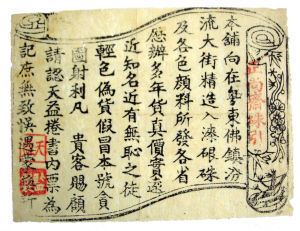 本舖向在粵東佛鎮汾
流大街精造入漆銀硃
及各色顏料所發各省
應辦多年貨真價實遠
近知名近有無恥之徒
輕色偽貨假冒本號負
圖射利凡 貴客賜顧
請認天益捲書內票為
記庶無致悞